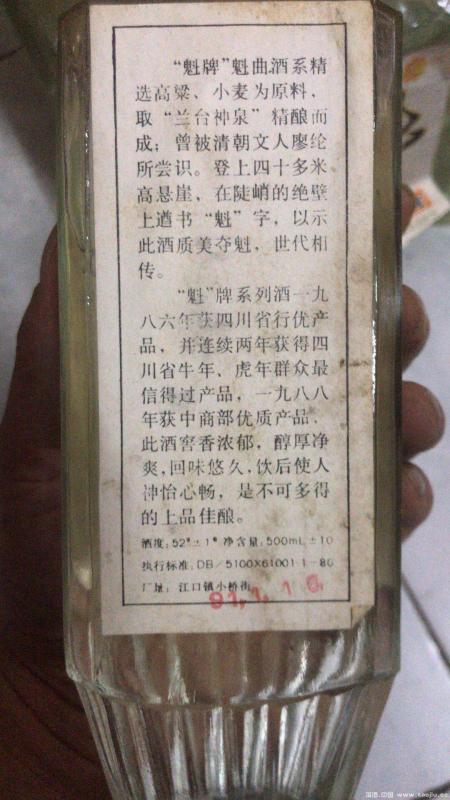 “魁牌”魁曲酒系精
选高粱、小麦为原料，
取“兰台神泉”精酿而
成；曾被清朝文人廖纶
所尝识。登上四十多米
高悬崖，在陡峭的绝壁
上遒书“魁”字，以示
此酒质美夺魁，世代相
传。
“魁”牌系列酒一九
八六年获四川省行优产
品，并连续两年获得四
川省牛年、虎年群众最
信得过产品，一九八八
年获中商部优质产品。
此酒窖香浓郁，醇厚净
爽，回味悠久，饮后使人
神怡心畅，是不可多得
的上品佳酿。
酒度：52°±1° 净含量：500mL±10
执行标准：DB／5100X61001·1—86
厂址：江口镇小桥街
91.1.16